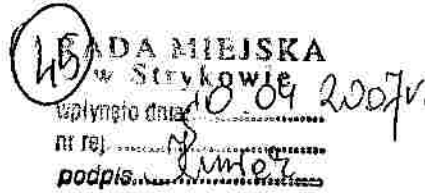 45
RADA MIEJSKA
w Strykowie
wpłynęło dnia 10 04 2007r.
nr rej.
podpis